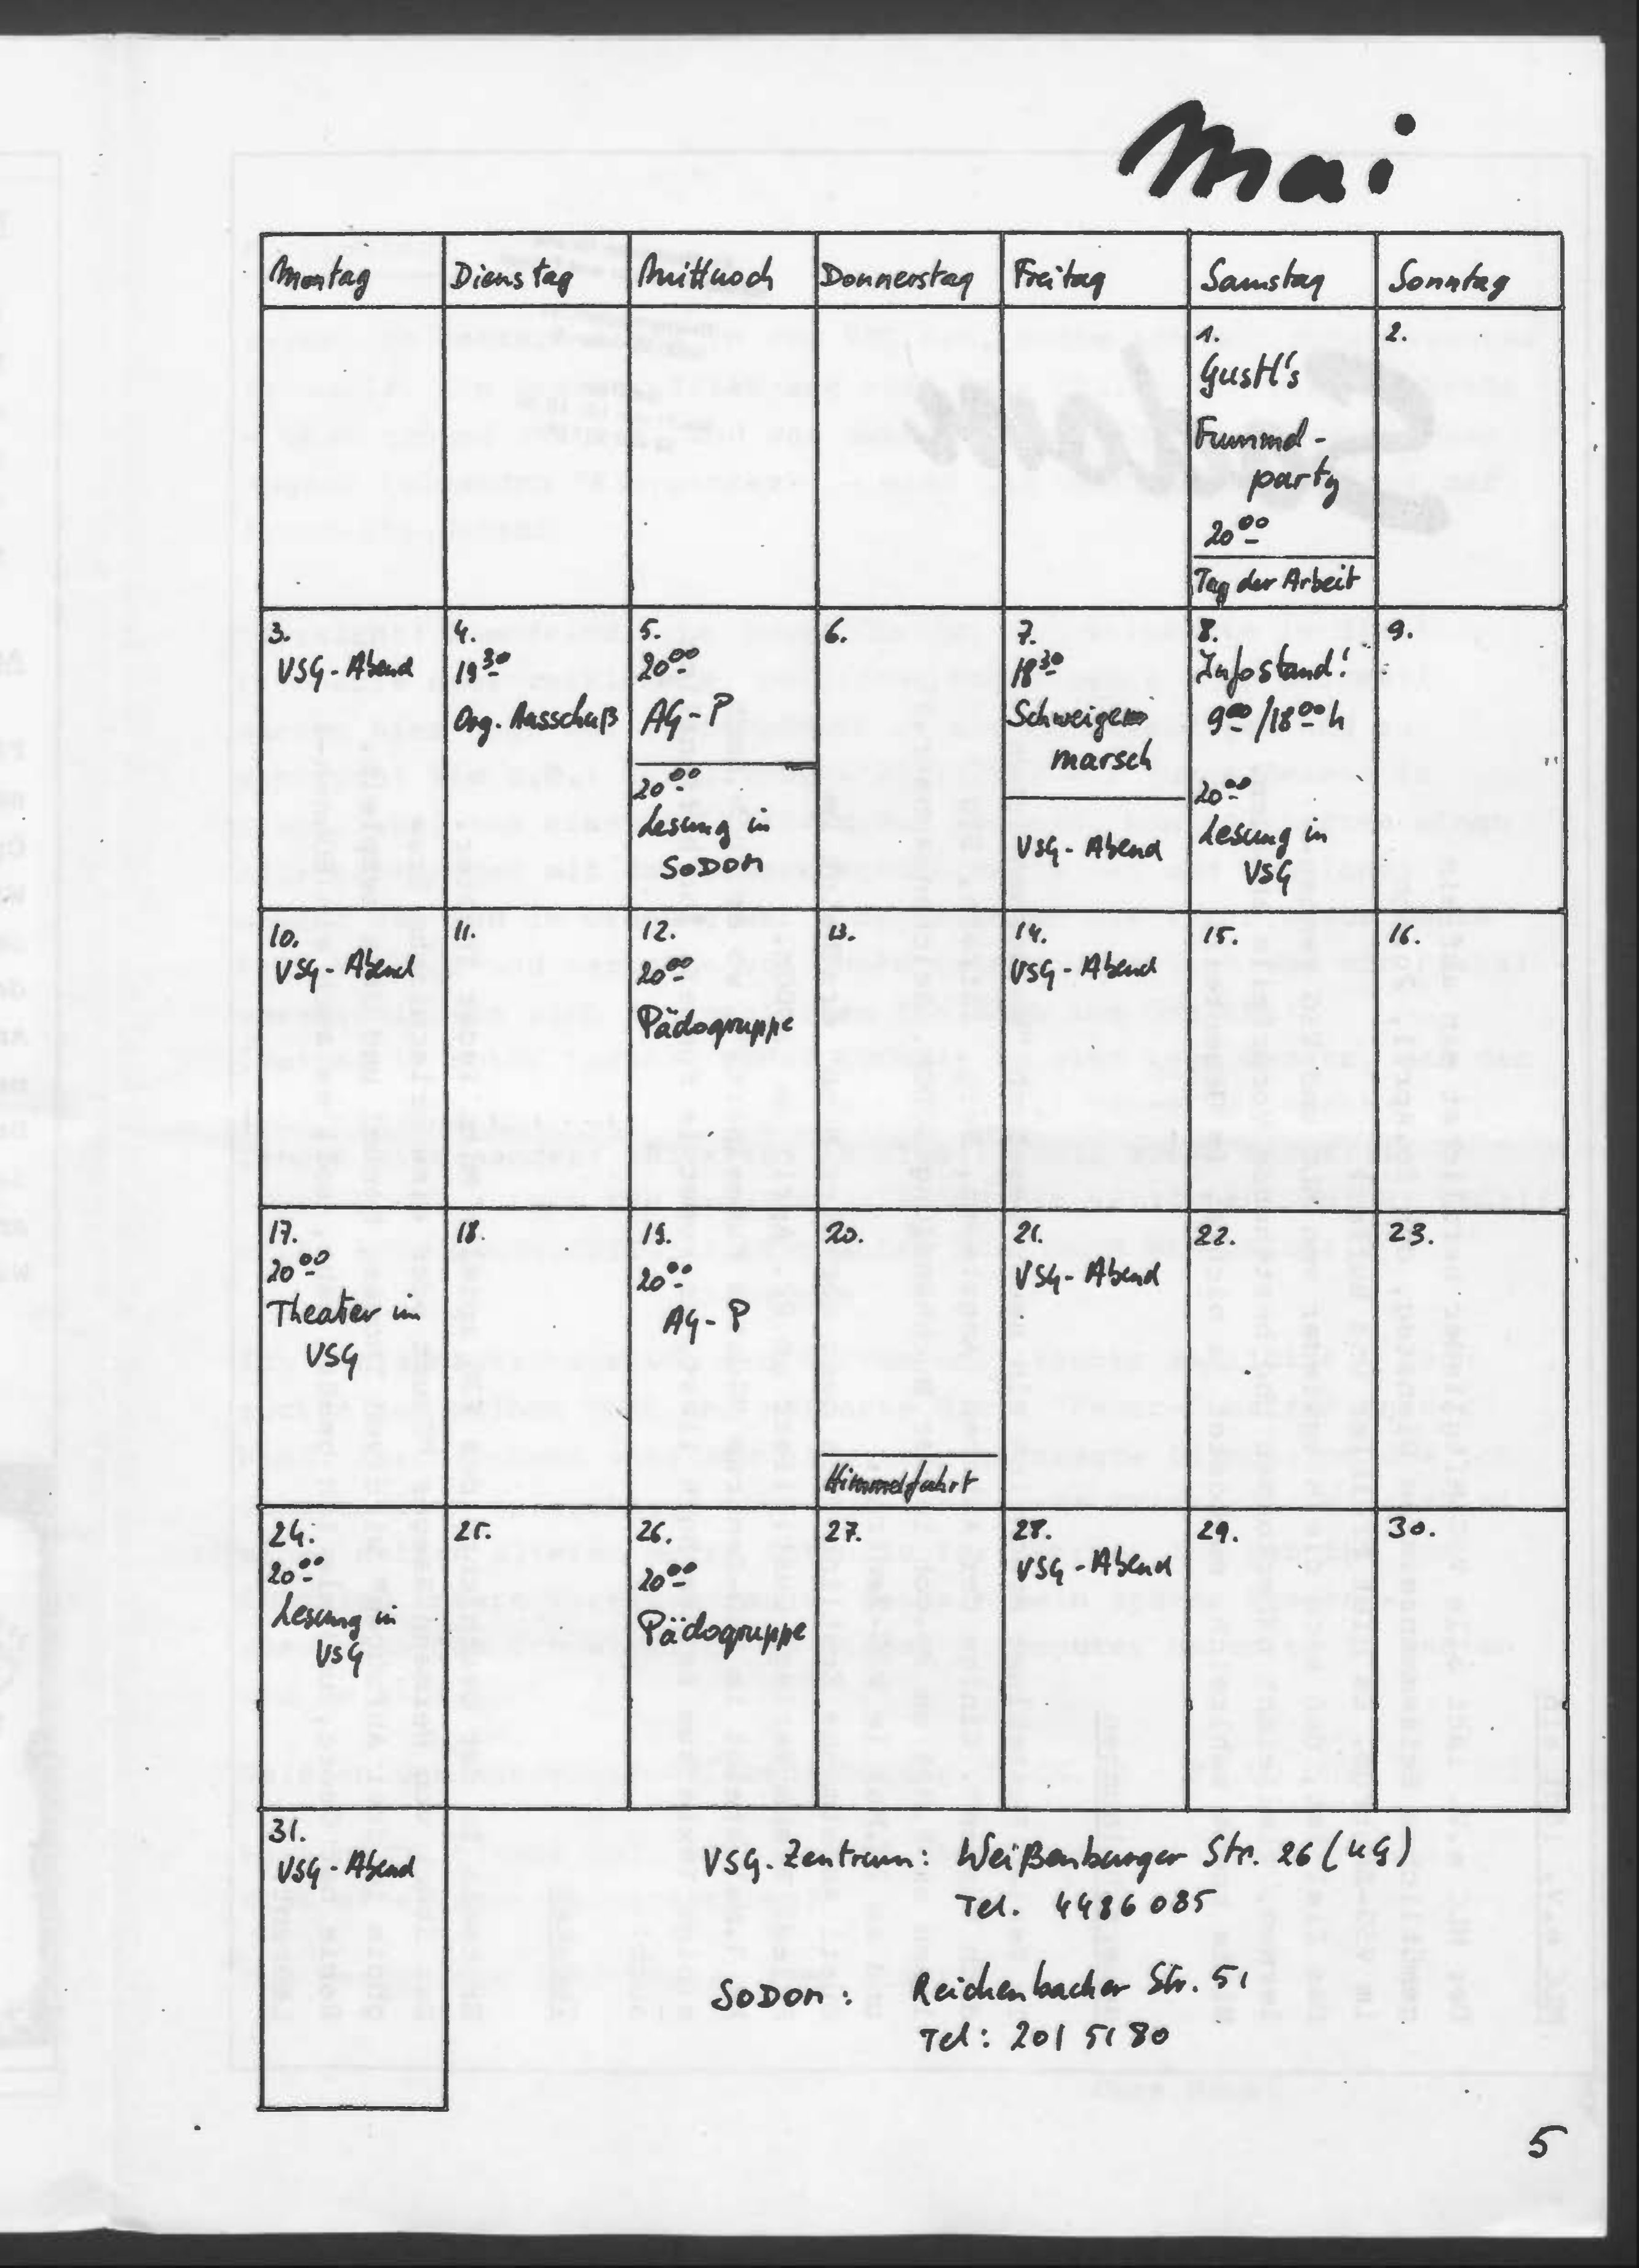 Mai
Montag Dienstag Mittwoch Donnerstag Freitag Samstag Sonntag
1.
Gustl's
Fummel-
party
20⁰⁰
Tag der Arbeit
2.
3.
VSG-Abend
4.
19³⁰
Org. Ausschuß
5.
20⁰⁰
AG-P
20⁰⁰
Lesung in
SODOM
6.
7.
18³⁰
Schweige
marsch
VSG-Abend
8.
Infostand!
9⁰⁰/18⁰⁰ h
20⁰⁰
Lesung in
VSG
9.
10.
VSG-Abend
11.
12.
20⁰⁰
Pädogruppe
13.
14.
VSG-Abend
15.
16.
17.
20⁰⁰
Theater im
VSG
18.
19.
20⁰⁰
AG-P
20.
Himmelfahrt
21.
VSG-Abend
22.
23.
24.
20⁰⁰
Lesung in
VSG
25.
26.
20⁰⁰
Pädogruppe
27.
28.
VSG-Abend
29.
30.
31.
VSG-Abend
VSG-Zentrum: Weißenburger Str. 26 (UG)
Tel. 4486085
SODOM: Reichenbacher Str. 51
Tel: 201 51 80
5